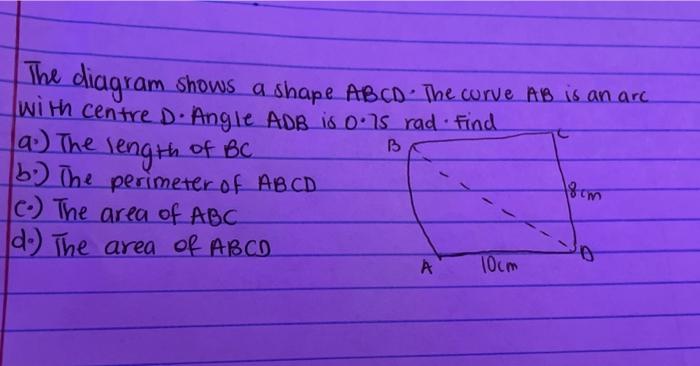 The diagram shows a shape ABCD. The curve AB is an arc
with centre D. Angle ADB is 0.75 rad. Find
a.) The length of BC
b.) The perimeter of ABCD
c.) The area of ABC
d.) The area of ABCD
B
C
8cm
A
10cm
D